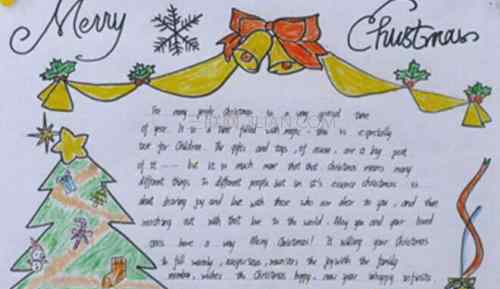 Merry Christmas
For many people Christmas is a very special time
of year. It is a time filled with magic - this is especially
true for Children. The gifts and toys, of course, are a big part
of it but it is much more than that Christmas means many
different things to different people but in it's essence Christmas is
about sharing joy and love with those who are dear to you, and then
reaching out with that love to the world. May you and your loved
ones have a very Merry Christmas! Is wishing your Christmas
to fill the joy with the family
member, wishes the Christmas happy, new year